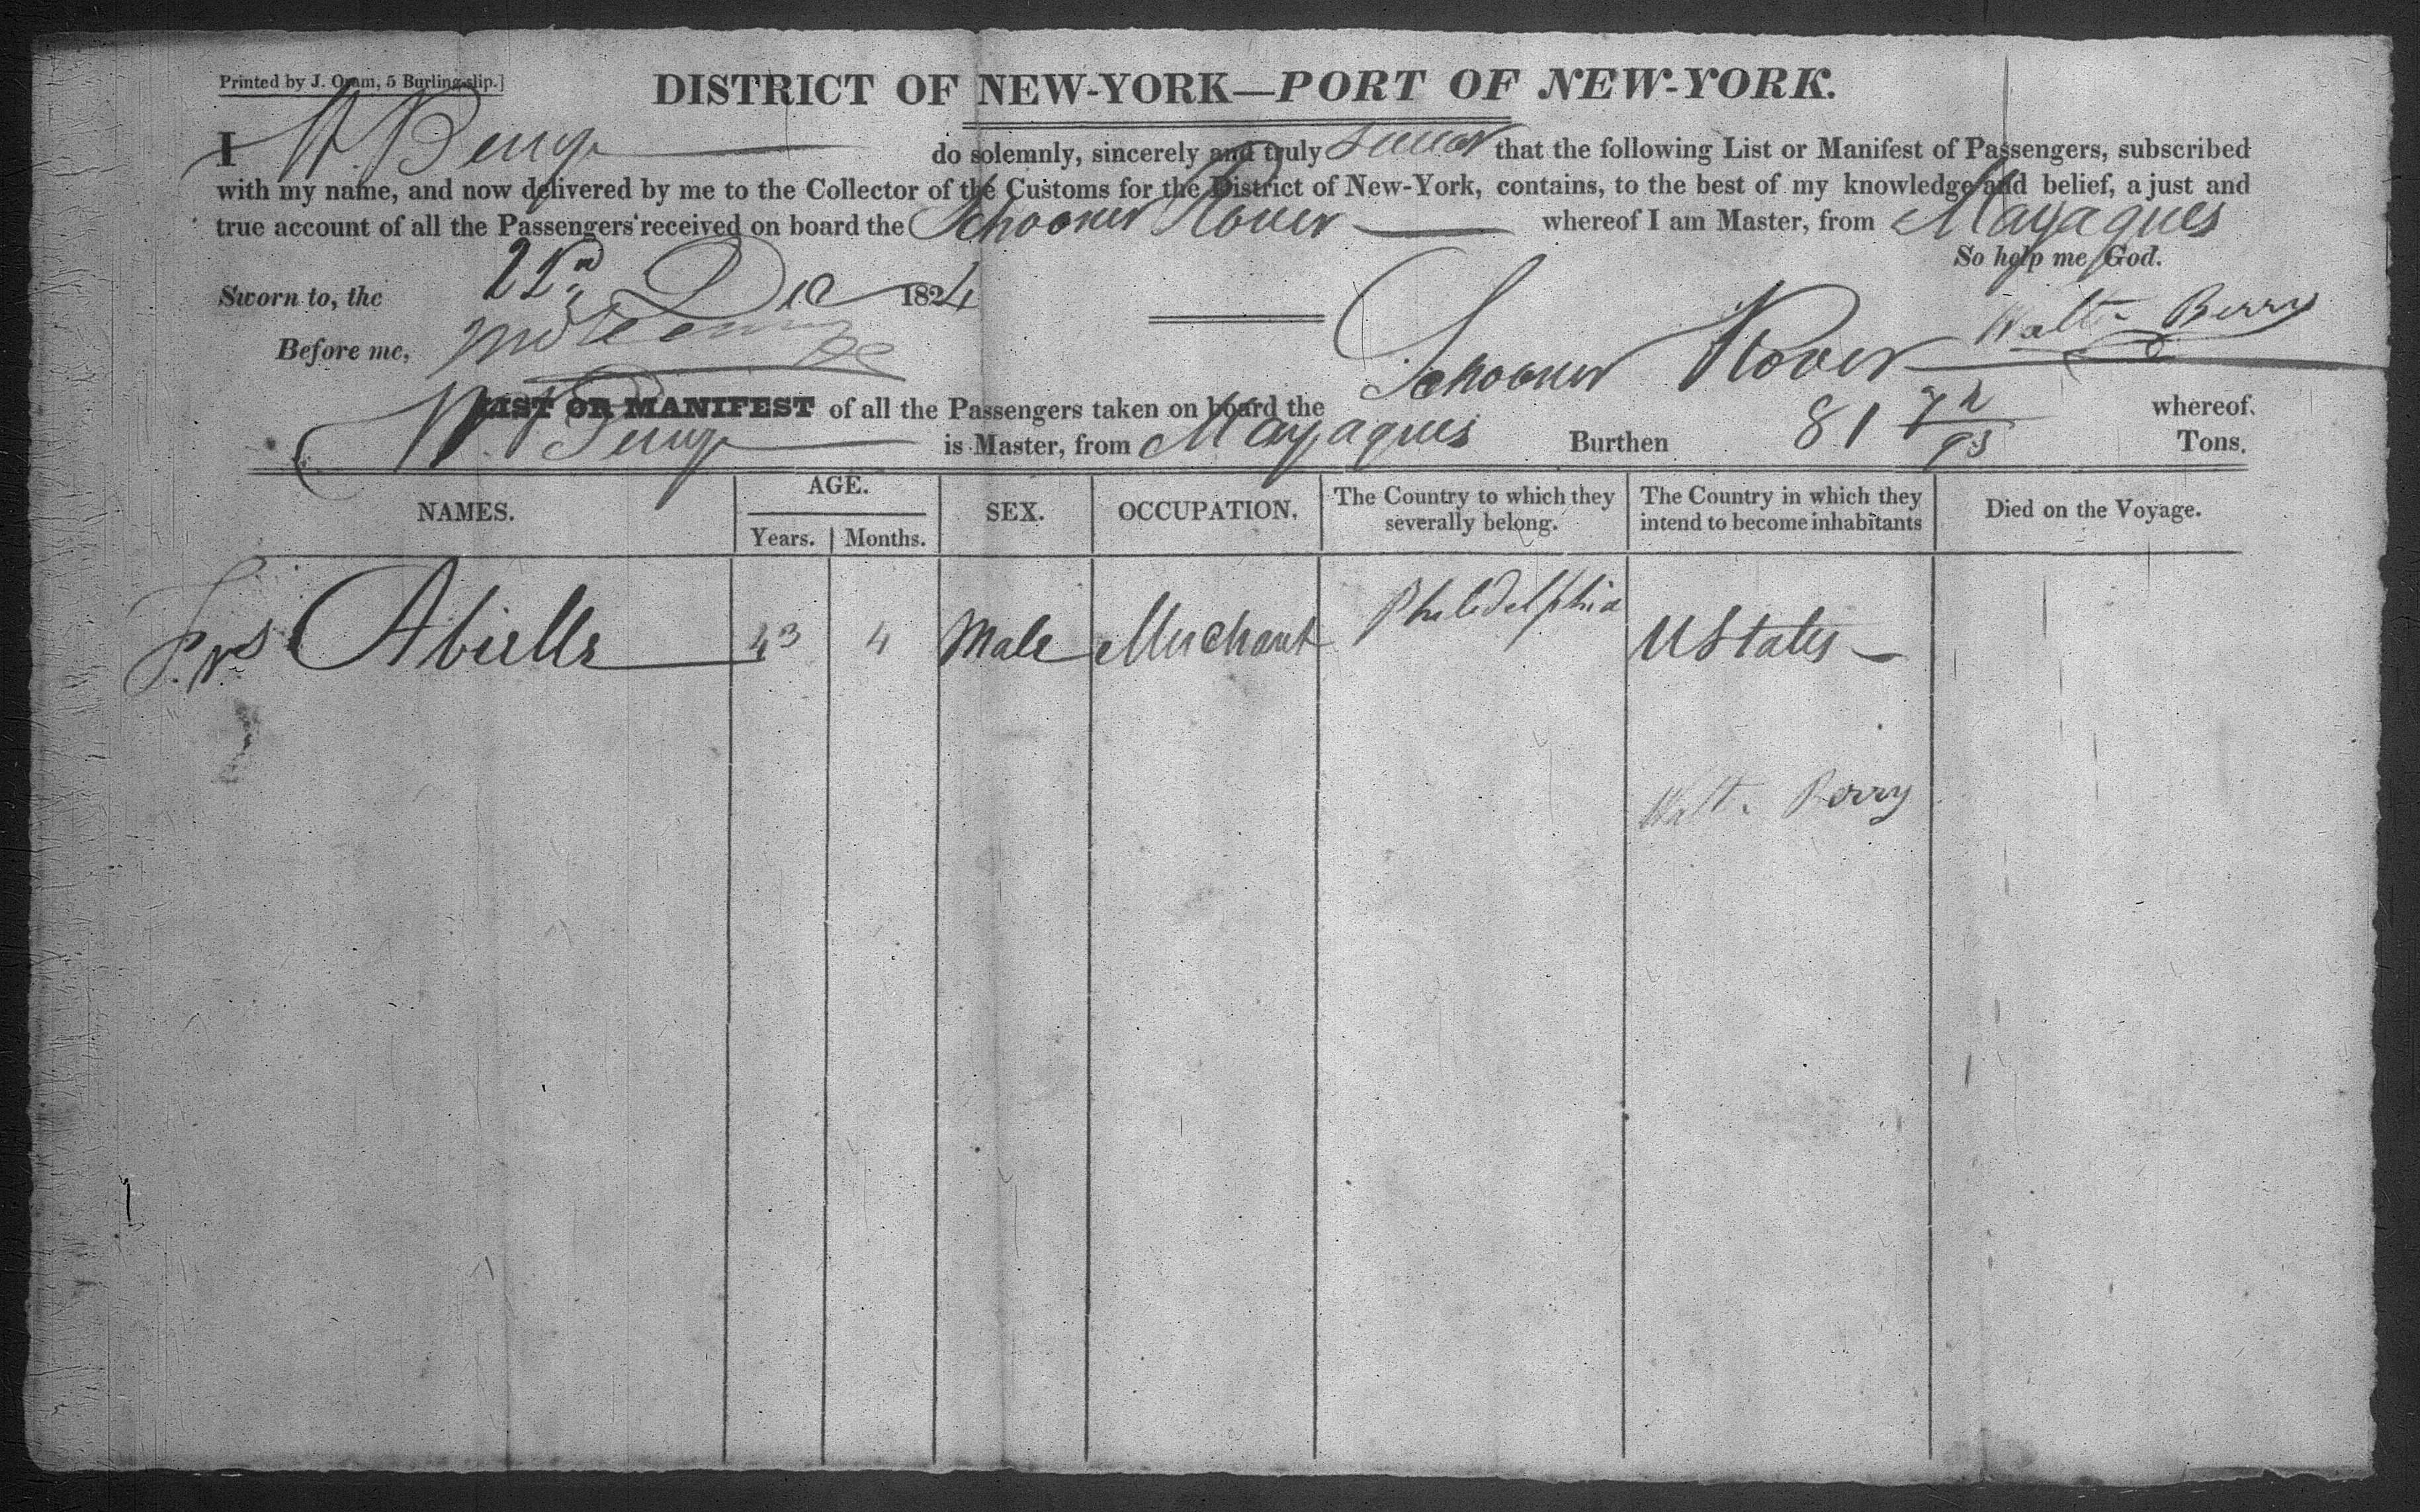 Printed by J. Oram, 5 Burling-slip.]
DISTRICT OF NEW-YORK—PORT OF NEW-YORK.
I W. Berry do solemnly, sincerely and truly swear that the following List or Manifest of Passengers, subscribed
with my name, and now delivered by me to the Collector of the Customs for the District of New-York, contains, to the best of my knowledge and belief, a just and
true account of all the Passengers received on board the Schooner Rover whereof I am Master, from Mayagues
So help me God.
Sworn to, the 22nd Dec 1824
Walt. Berry
Before me,
LIST OR MANIFEST of all the Passengers taken on board the Schooner Rover whereof
W. Berry is Master, from Mayagues Burthen 81 72/95 Tons.
NAMES. AGE. SEX. OCCUPATION. The Country to which they severally belong. The Country in which they intend to become inhabitants Died on the Voyage.
Years. Months.
Abielle 43 4 Male Merchant Philedelphia UStates
Walt. Berry